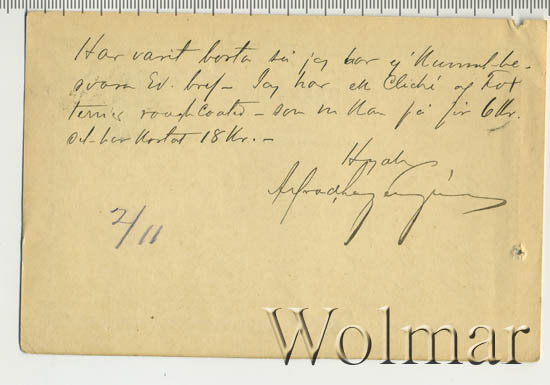 Har varit borta så jag har ej kunnat be-
svara Ed. bref – Jag har en Cliché af Fox
terrier rough Coated – som ni kan få för 6 Kr.
det har kostat 18 Kr. –
2/11
Wolmar